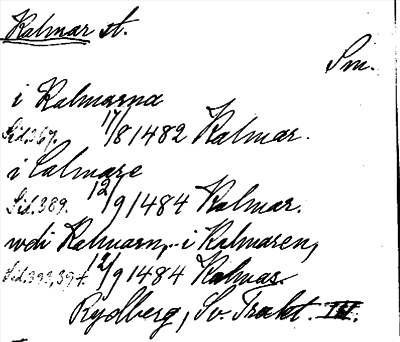 Kalmar st.
Sm.
i Kalmarna
Sid. 367. 17/8 1482 Kalmar.
i Calmare
Sid. 389. 12/9 1484 Kalmar.
wdi Kalmarn, i Kalmaren,
Sid. 393, 394. 12/9 1484 Kalmar.
Rydberg, Sv. Trakt. III.